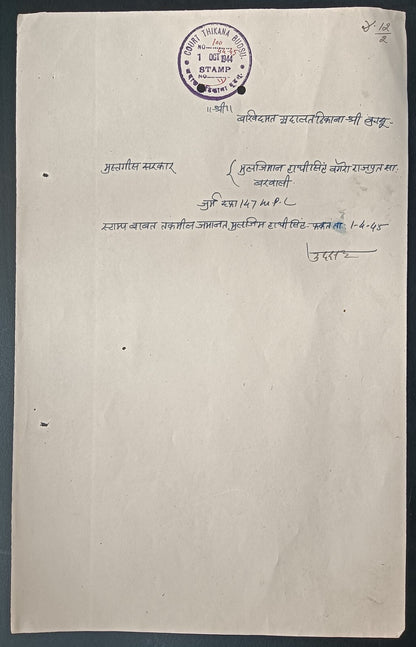 COURT THIKANA BUDSU
NO 100
44-45
1 OCT 1944
STAMP
NO
४ 12/2
॥श्री॥
बखिदमत अदालत ठिकाना श्री बुडसू -
मुस्तगीस सरकार
{ मुलजिमान हाथीसिंह वगैरा राजपूत सा.
बरवाली
जुर्म दफा 147 M.P.C
स्टाम्प बाबत तकमील जमानत मुलजिम हाथीसिंह 1-4-45